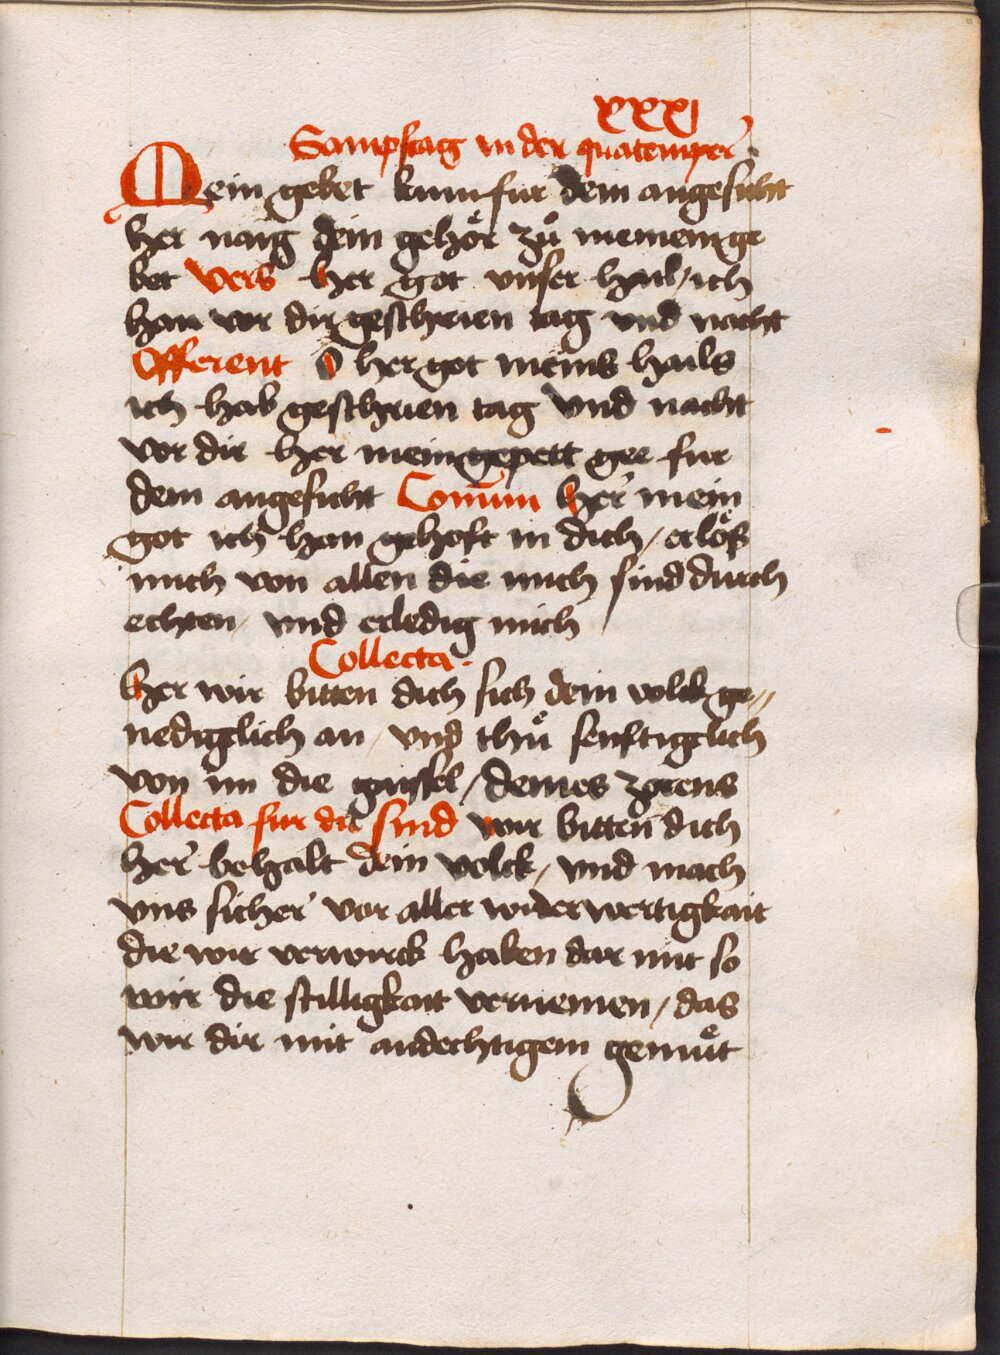 xxxj
Sampstag in der quatemper
Mein gebet kum fur dein angesicht
her naig dein gehoͤr zuͦ meinem ge
bet Vers her got vnser hail / ich
han vor dir geschrien tag vnd nacht
Offerent O her got meins hails
ich hab geschrien tag vnd nacht
vor dir her mein gepett gee fur
dein angesicht Com̄un her mein
got ich han gehoft in dich / erloͤß
mich von allen die mich sind durch
echten / vnd erledig mich
Collecta
her wir bitten dich sich dein volck ge〃
nediglich an / vnd thuͦ senftigglich
von im die gaissel / deines zorens
Collecta fur die sind wir bitten dich
her behalt dein volck / vnd mach
vns sicher vor aller widerwertigkait
die wir verwirck haben dar mit so
wir die stilligkait vernemen / das
wir dir mit andechtigem gemuͤt